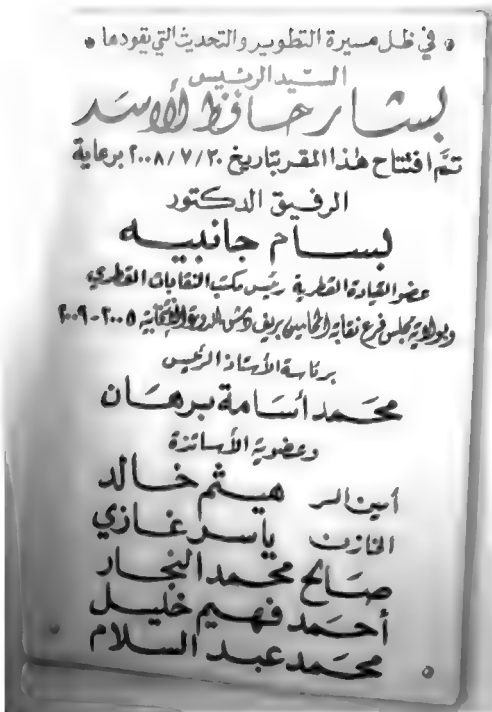 في ظل مسيرة التطوير والتحديث التي يقودها
السيد الرئيس
بشار حافظ الأسد
تم افتتاح هذا المقر بتاريخ ٢٠٠٨/٧/٢٠ برعاية
الرفيق الدكتور
بسام جانبيه
عضو القيادة القطرية رئيس مكتب النقابات القطري
وبولاية مجلس فرع نقابة المحامين بريف دمشق الدورة النقابية ٢٠٠٥-٢٠٠٩
برئاسة الأستاذ الرئيس
محمد أسامة برهان
وعضوية الأساتذة
أمين السر هيثم خالد
الخازن ياسر غازي
صالح محمد النجار
أحمد فهيم خليل
محمد عبد السلام